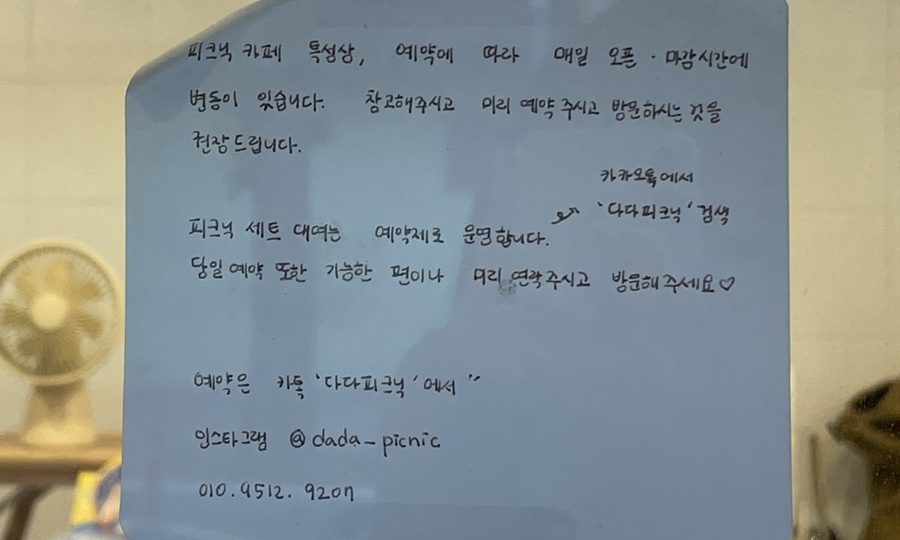 피크닉 카페 특성상, 예약에 따라 매일 오픈 · 마감시간에
변동이 있습니다. 참고해주시고 미리 예약 주시고 방문하시는 것을
권장드립니다.
카카오톡에서
'다다피크닉' 검색
피크닉 세트 대여는 예약제로 운영합니다.
당일예약 또한 가능한 편이나 미리 연락주시고 방문해주세요♡
예약은 카톡 '다다피크닉'에서 "
인스타그램 @dada_picnic
010. 9512. 9207